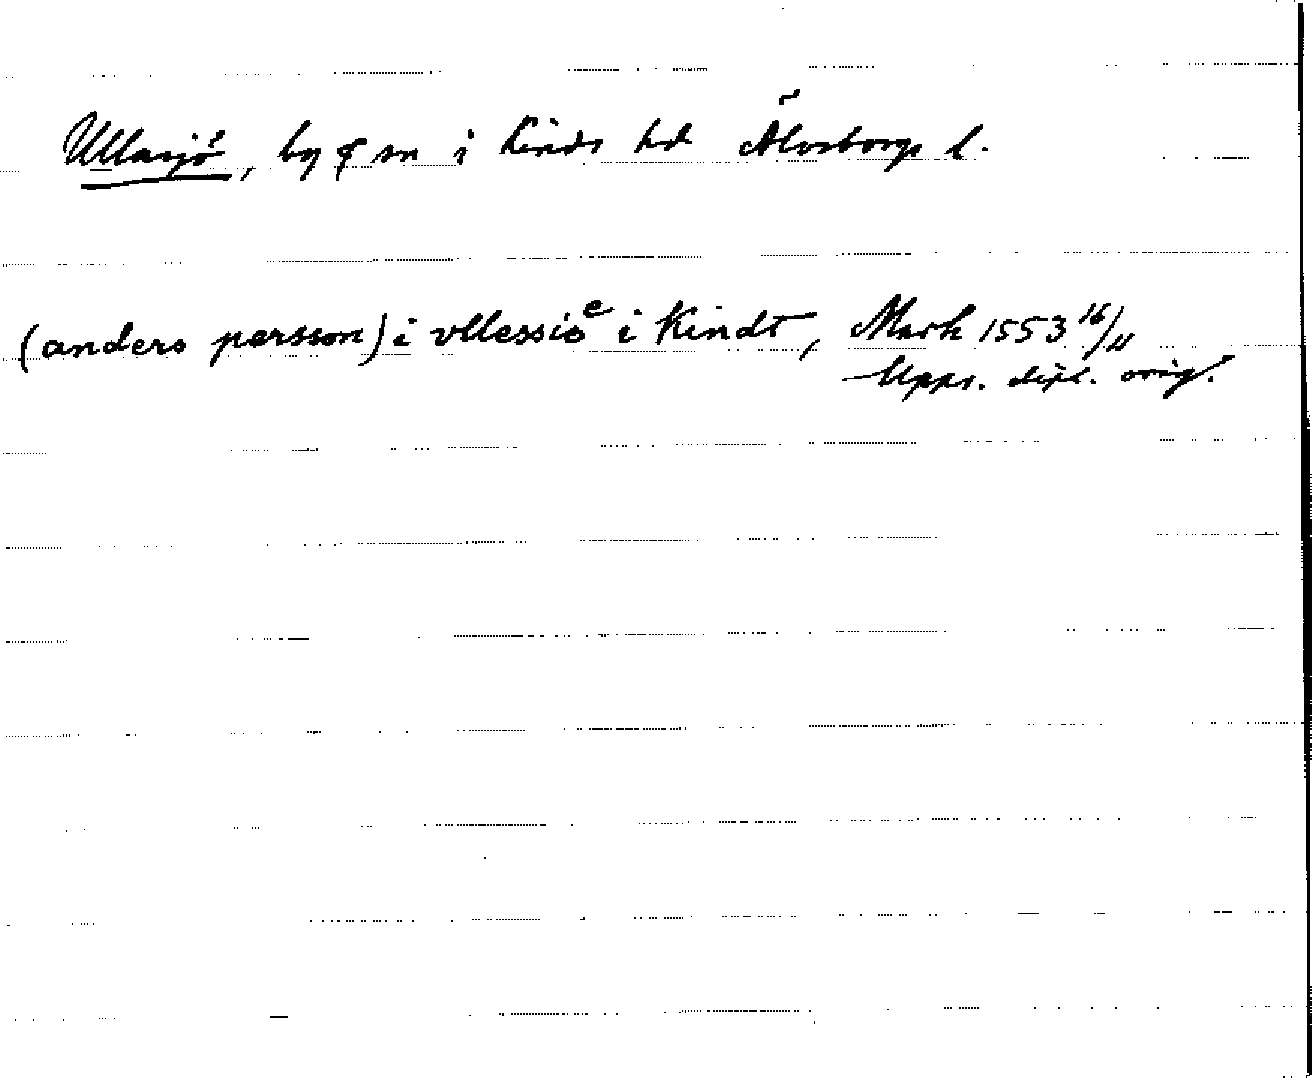 Ullasjö, by o sn i Kinds hd Älvsborgs l.
(anders persson) i vllessioͤ i Kindt, Mark 1553 16/11
Upps. dipl. orig.